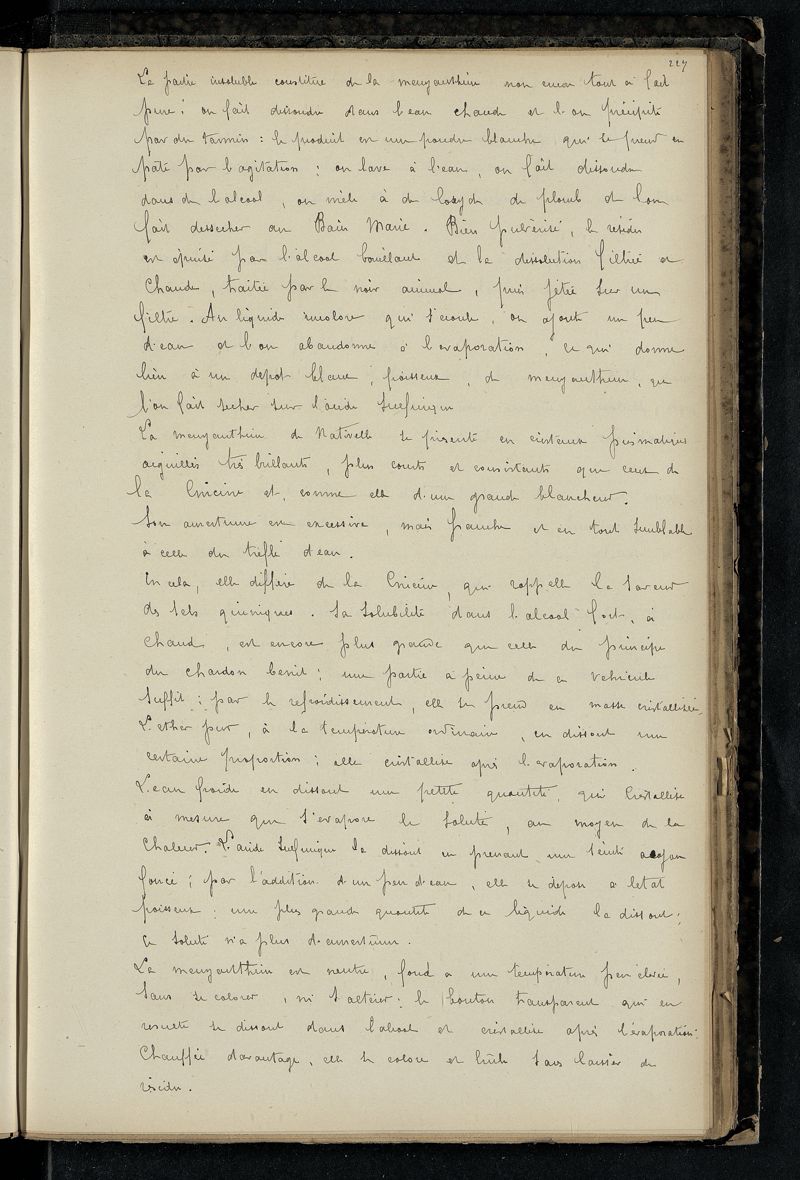 227
La partie insoluble constitue de la menyanthin non encor tout à fait
pure; on fait dissoudre dans l'eau chaude et l'on précipite
par du tannin : le produit est une poudre blanche qui se prend en
pâte par l'agitation ; on lave à l'eau, on fait dissoudre
dans de l'alcool, on mêle à de l'oxyde de plomb et l'on
fait dessecher au Bain Marie. Bien pulvérisé, le résidu
est épuisé par l'alcool bouillant et la dissolution filtrée et
chaude, traitée par le noir animal, puis jétée sur un
filtre. Au liquide incolore qui s'écoule, on ajoute un peu
d'eau et l'on abandonne à l'evaporation, ce qui donne
lieu à un depot blanc, poisseux, de menyanthin, que
l'on fait secher sur l'acide sulfurique
La menyanthin de Nativelle se présente en cristaux prismatiques
aiguillés très brillants, plus courts et consistants que ceux de
la Cnicine et, comme elle d'une grande blancheur.
Son amertume est excessive, mais franche et en tout semblable
à celle du trèfle d'eau.
En cela, elle diffère de la Cnicin, qui rappelle la saveur
des sels quiniques. Sa solubilité dans l'alcool fort, à
chaud, est encore plus grande que celle du principe
du chardon benit; une partie à peine de ce vehicule
suffit; par le refroidissement, elle se prend en masse cristallisée.
L'ether pur, à la température ordinaire, en dissout une
certaine proportion; elle cristallise après l'evaporation.
L'eau froide en dissout une petite quantité, qui cristallise
à mesure que s'evapore le soluté, au moyen de la
chaleur. L'acide sulfurique la dissout en prenant une teinte acajou
foncé; par l'addition d'un peu d'eau, elle se depose a letat
poisseux; une plus grande quantité de ce liquide la dissout;
ce soluté n'a plus d'amertume.
La menyantthin est neutre, fond a une température peu élevée,
sans se colorer, ni s'altérer; le bouton transparent qui en
resulte se dissout dans l'alcool et cristallise après l'évaporation.
Chauffée davantage, elle se colore et brûle sans laisser de
résidu.